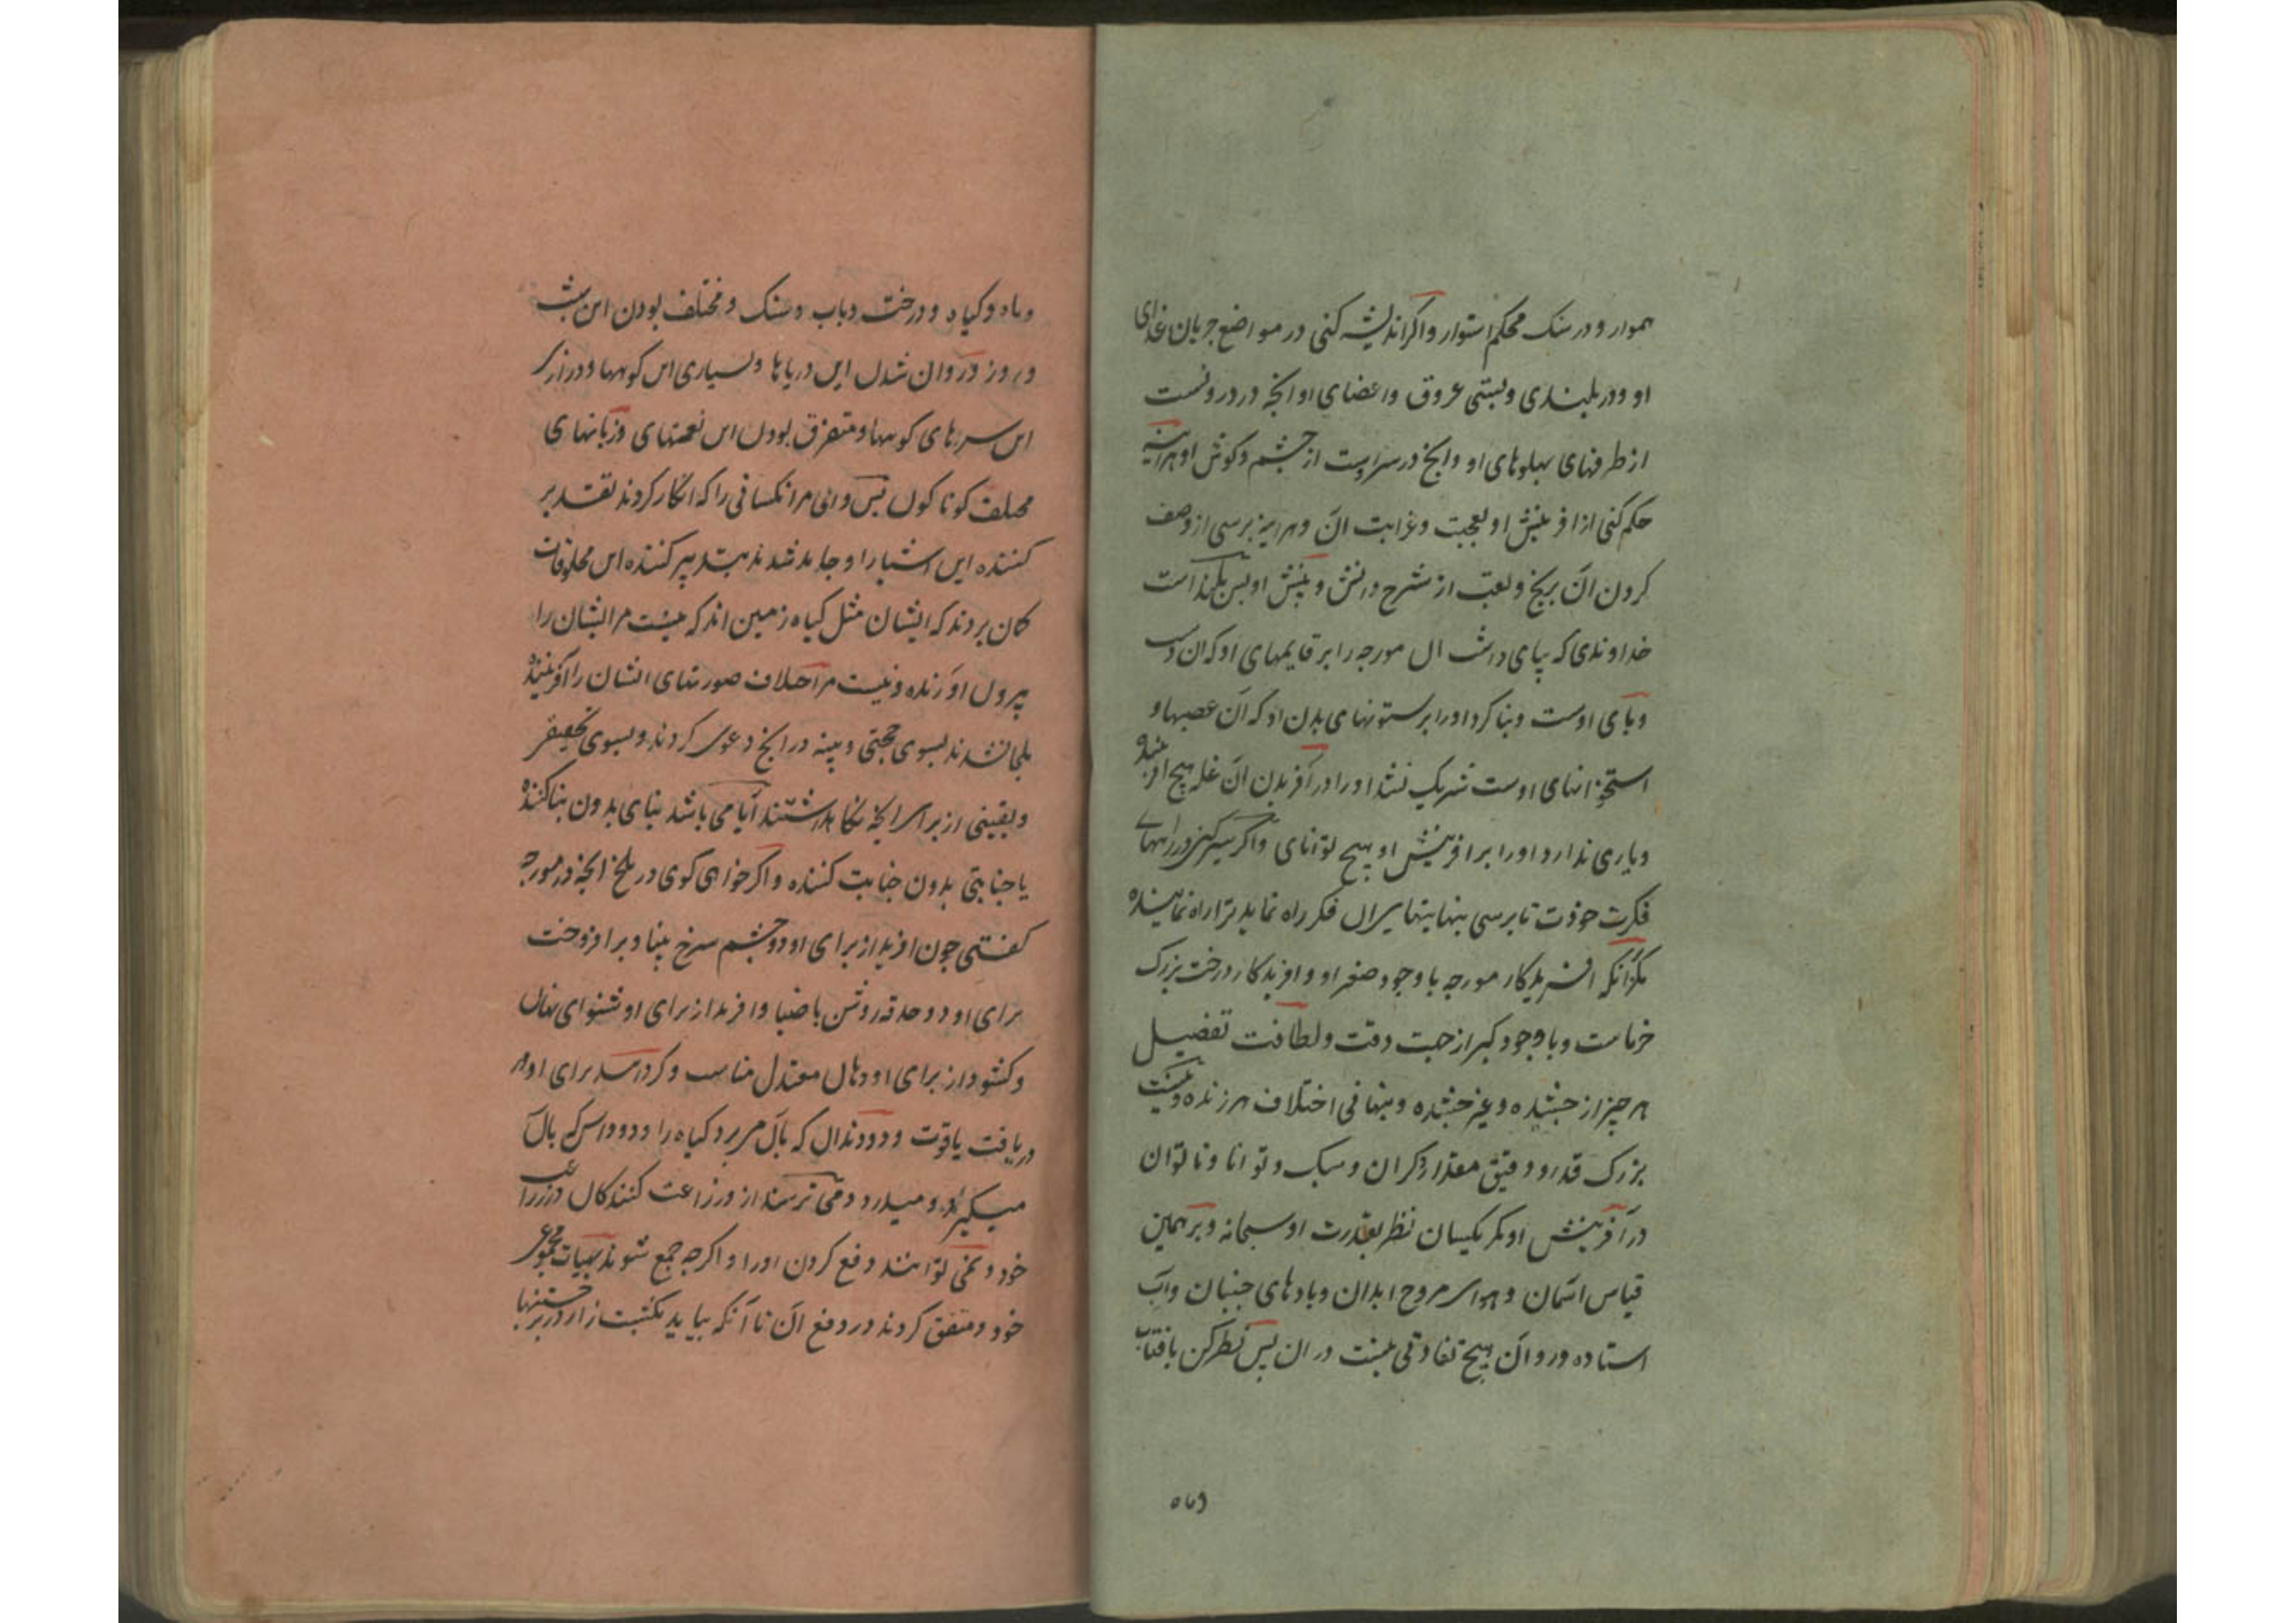 هموار و در سنک محکم استوار و اکر اندیشه کنی در مواضع جریان غذای
او و در بلندی و پستی عروق و اعضای او و انچه در درونست
از طرفهای پهلوهای او و انچه در سر اوست از چشم و کوش او هراینه
حکم کنی از افرینش او بعجب و غرابت آن و هراینه برسی از وصف
کردن آن برنج و تعب از شرح دانش و بینش او پس بلند است
خداوندی که بپای داشت آن مورچه را بر قایمهای او که آن دست
و پای اوست و بنا کرد او را بر ستونهای بدن او که آن عصبها و
استخوانهای اوست شریک نشد او را در آفریدن آن غله هیچ افریننده
و یاری نداد او را بر افرینش او هیچ توانای و اکر سیر کنی در راههای
فکرت خودت تا برسی بنهایتهای آن فکر راه نماید ترا راه نماینده
مکر آنکه آفریدکار مورچه با وجود صغر او و افریدکار درخت بزرک
خرماست و با وجود کبر از جهت دقت و لطافت تفضیل
هر چیز از جنبنده و غیر جنبنده و پنهانی اختلاف هر زنده و نیست
بزرک قدر و دقیق مقدار و کران و سبک و توانا و ناتوان
در آفرینش او مکر یکسان نظر بقدرت او سبحانه و بر همین
قیاس اسمان و هوای مروح ابدان و بادهای جنبان و آب
استاده و روان هیچ تفاوتی نیست در ان پس نظر کن بافتاب
و ماه و کیاه و درخت و باب و سنک و مختلف بودن این شب
و روز و روان شدن این دریاها و بسیاری این کوهها و درازی
این سرهای کوهها و متفرق بودن این لغتهای و زبانهای
مختلف کوناکون پس وای مر انکسانی را که انکار کردند تقدیر
کننده این اشیا را و جاحد شدند تدبیر کننده این مخلوقات
کمان بردند که ایشان مثل کیاه زمین اند که نیست مر ایشان را
بیرون اورنده و نیست مر اختلاف صورتهای ایشان را آفریننده
ملجا نشدند بسوی حجتی و بینه در انچه دعوی کردند و بسوی تحقیق
و یقینی از برای انچه نکاهداشتند آیا می باشد بنای بدون بنا کننده
یا جنایتی بدون جنایت کننده و اکر خواهی کوی در ملخ انچه در مورچه
کفتی چون افرید از برای او دو چشم سرخ بینا و بر افروخت
برای او دو حدقه روشن با ضیا و افرید از برای او شنوای نهان
و کشود از برای او دهان معتدل مناسب و کردانید برای او
دریافت یاقوت و دو دندان که بآن می برد کیاه را و دو داس که بآن
میکیرد و میدارد و می ترسند از و زراعت کنندکان در زراعت
خود و نمی توانند دفع کردن او را و اکر چه جمع شوند بهیات مجموعی
خود و متفق کردند در دفع آن تا آنکه بیاید بکشت زار در برجستنها